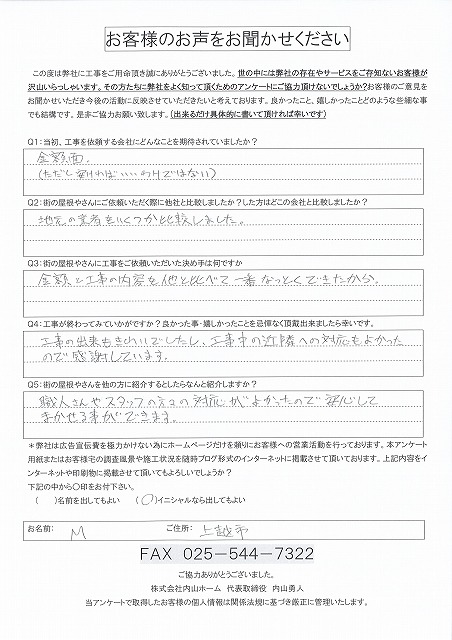 お客様のお声をお聞かせください
この度は弊社に工事をご用命頂き誠にありがとうございました。世の中には弊社の存在やサービスをご存知ないお客様が
沢山いらっしゃいます。その方たちに弊社をよく知って頂くためのアンケートにご協力頂けないでしょうか?お客様のご意見を
お聞かせいただき今後の活動に反映させていただきたいと考えております。良かったこと、嬉しかったことどのような些細な事
でも結構です。是非ご協力お願い致します。(出来るだけ具体的に書いて頂ければ幸いです)
Q1:当初、工事を依頼する会社にどんなことを期待されていましたか?
金額面。
(ただし安ければいいわけではない)
Q2:街の屋根やさんにご依頼いただく際に他社と比較しましたか?した方はどこの会社と比較しましたか?
地元の業者をいくつか比較しました。
Q3:街の屋根やさんに工事をご依頼いただいた決め手は何ですか
金額と工事の内容を他と比べて一番なっとくできたから。
Q4:工事が終わってみていかがですか?良かった事・嬉しかったことを忌憚なく頂戴出来ましたら幸いです。
工事の出来もきれいでしたし、工事中の近隣への対応もよかった
ので感謝しています。
Q5:街の屋根やさんを他の方に紹介するとしたらなんと紹介しますか?
職人さんやスタッフの方々の対応がよかったので安心して
まかせる事ができます。
*弊社は広告宣伝費を極力かけない為にホームページだけを頼りにお客様への営業活動を行っております。本アンケート
用紙またはお客様宅の調査風景や施工状況を随時ブログ形式のインターネットに掲載させて頂いております。上記内容をイ
ンターネットや印刷物に掲載させて頂いてもよろしいでしょうか?
下記の中から〇印をお付下さい。
( )名前を出してもよい (○)イニシャルなら出してもよい
お名前: M ご住所: 上越市
FAX 025-544-7322
ご協力ありがとうございました。
株式会社内山ホーム 代表取締役 内山勇人
当アンケートで取得したお客様の個人情報は関係法規に基づき厳正に管理いたします。